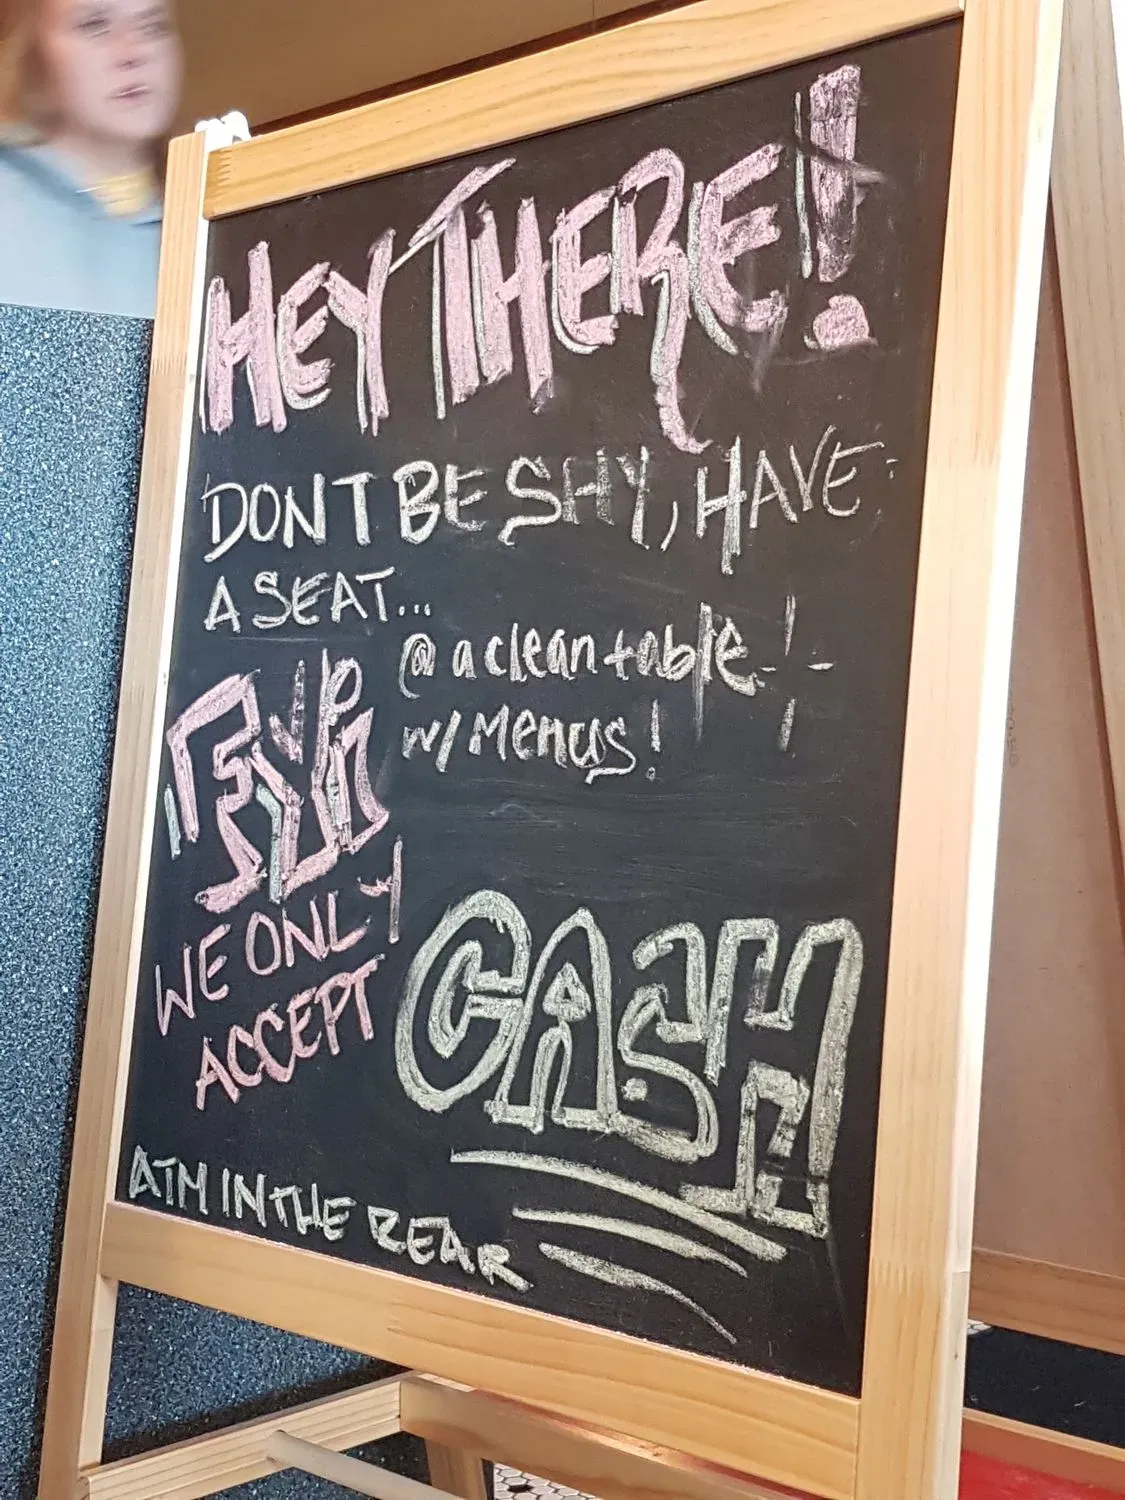 HEY THERE!
DONT BE SHY, HAVE
A SEAT...
@ a clean table!
w/ Menus!
FYI
WE ONLY
ACCEPT
CASH
ATM IN THE REAR